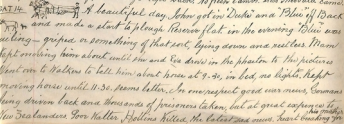 SAT 14. A beautiful day. John got in Duke and Blue off Back
and made a start to plough Reserve flat in the evening Blue was
ailing - griped or something of that sort, lying down and restless. Man
kept moving him about until six and I drove in the phaeton to the pictures
went out to Walkers to tell him about horse at 9-30, in bed, no light. Kept
moving horse until 11-30. seems better. In one respect good war news, Germans
being driven back and thousands of prisoners taken, but at great expense to
New Zealanders Poor Waller Hollins Killed, the latest sad news, heart breaking for his mother